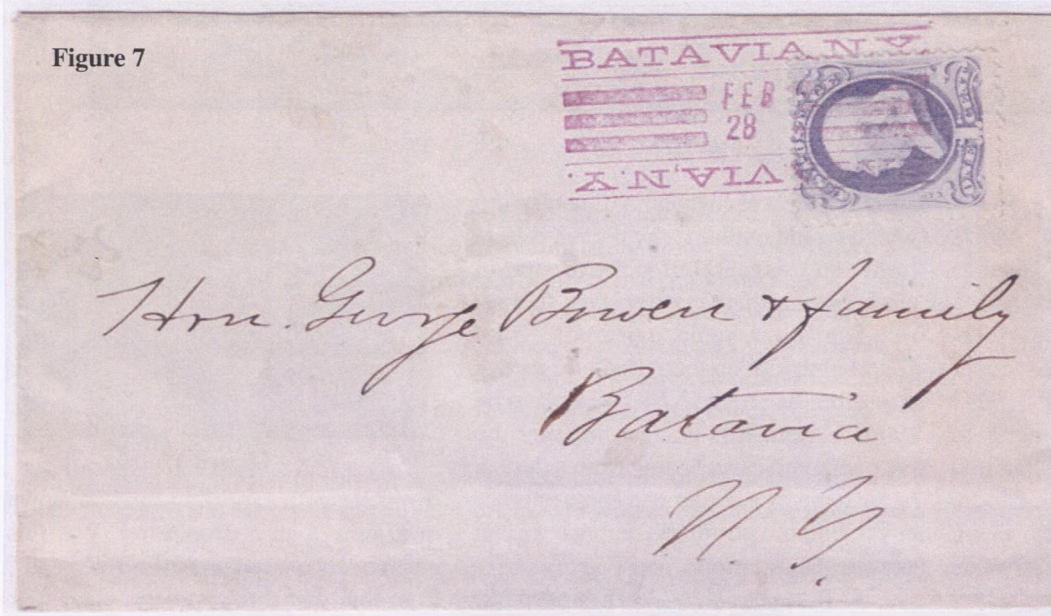 Figure 7
BATAVIA N.Y.
FEB
28
VIA, N.Y.
Hon. George Bowen & family
Batavia
N. Y.